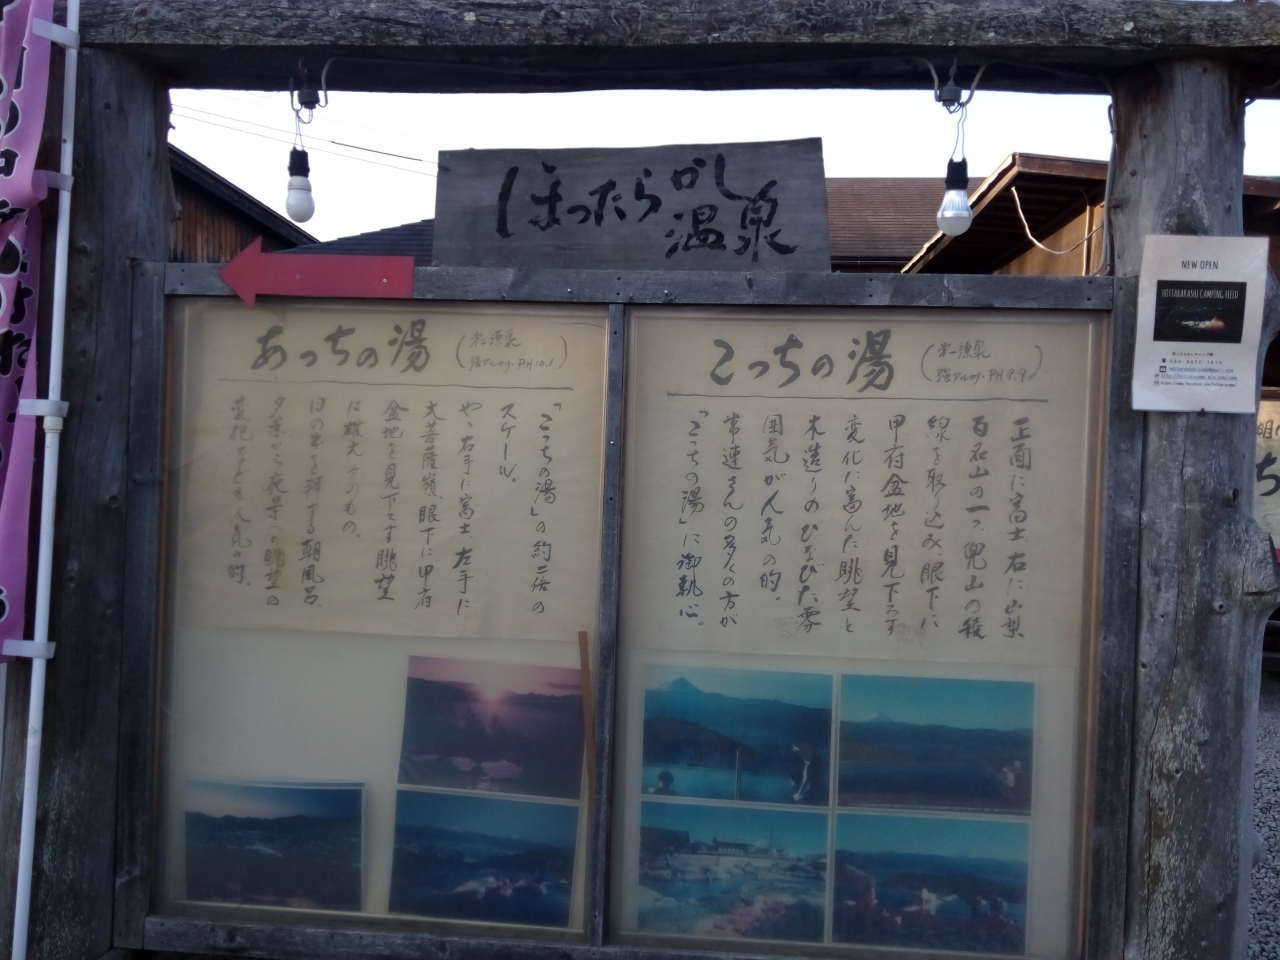 ほったらかし
温泉
こっちの湯
(第一源泉
強アルカリ・PH9.9)
正面に富士、右に山梨
百名山の一つ、兜山の稜
線を取り込み、眼下に
甲府盆地を見下ろす
変化に富んだ眺望と
木造りのひなびた雰
囲気が人気の的。
常連さんの多くの方が
「こっちの湯」に御執心。
あっちの湯
(第二源泉
強アルカリ・PH10.1)
「こっちの湯」の約二倍の
スケール。
やゝ右手に富士、左手に
大菩薩嶺、眼下に甲府
盆地を見下ろす眺望
は雄大そのもの。
日の出を拝する朝風呂、
夕景から夜景への眺望の
変化なども人気の的。
NEW OPEN
HOTTARAKASHI CAMPING FIELD